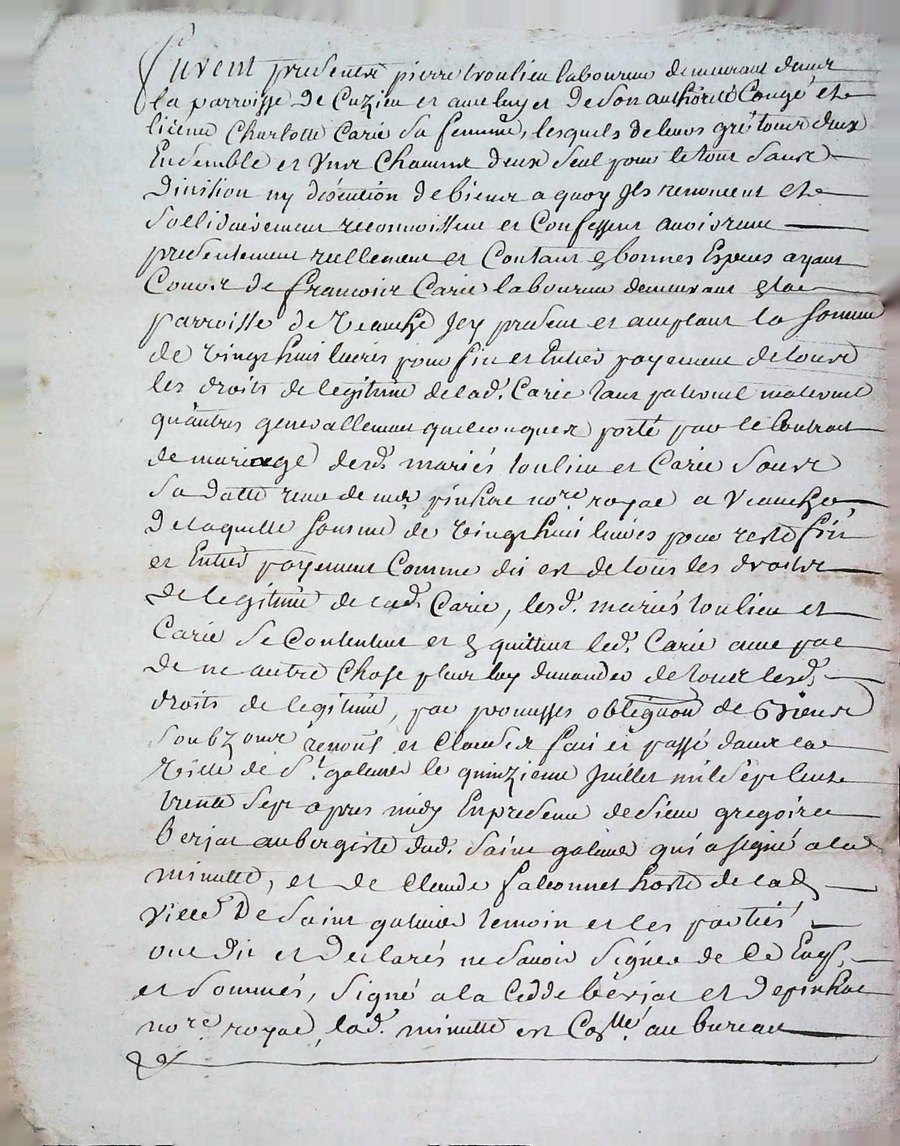 Furent presents pierre toulieu laboureur demeurant dans
la parroisse de Cuzieu et avec luy et de son authorité Congé et
licence Charlotte Carie sa femme, lesquels de leurs gré tous deux
Ensemble et Un Chacun deux seul pour le tout sans
Division ny discution de biens a quoy Ils renoncent et
Sollidairement reconnoissent et Confessent avoir reçu
presentement reellement et Contant en bonnes Especes ayant
Cours de francois Carie laboureur demeurant en la
parroisse de Veauche Icy present et acceptant la somme
de vingt huit livres pour fin et Entier payement de tous
les droits de legitime de lad. Carie tant paternel maternel
qu'autres generallement quelconques porté par le Contrat
de mariage desd. mariés toulieu et Carie sous
sa datte reçu de me. pinhac nore. royal a Veauche
De laquelle somme de vingt huit livres pour reste fin
et Entier payement Comme dit est de tous les droits
de legitime de lad. Carie, lesd. mariés toulieu et
Carie se Contentent et en quittent led. Carie avec pac
de ne autre Chose plus luy demander de tous lesd.
droits de legitime, par promesses obligaon de Biens
soubzons renons et Clauses fait et passé dans la
Ville de St. galmier le quinzieme Juillet mil sept cents
trente sept apres midy En presence de sieur gregoire
berjat aubergiste dud. saint galmier qui a signé a la
minutte, et de Claude falconnet hoste de lad.
ville De saint galmier temoin et les parties
ont dit et Declarés ne savoir signer de Ce Enqs.
et sommés, signé a la Cedde berjat et Depinhac
nore. royal, lad. minutte est Collée. au bureau